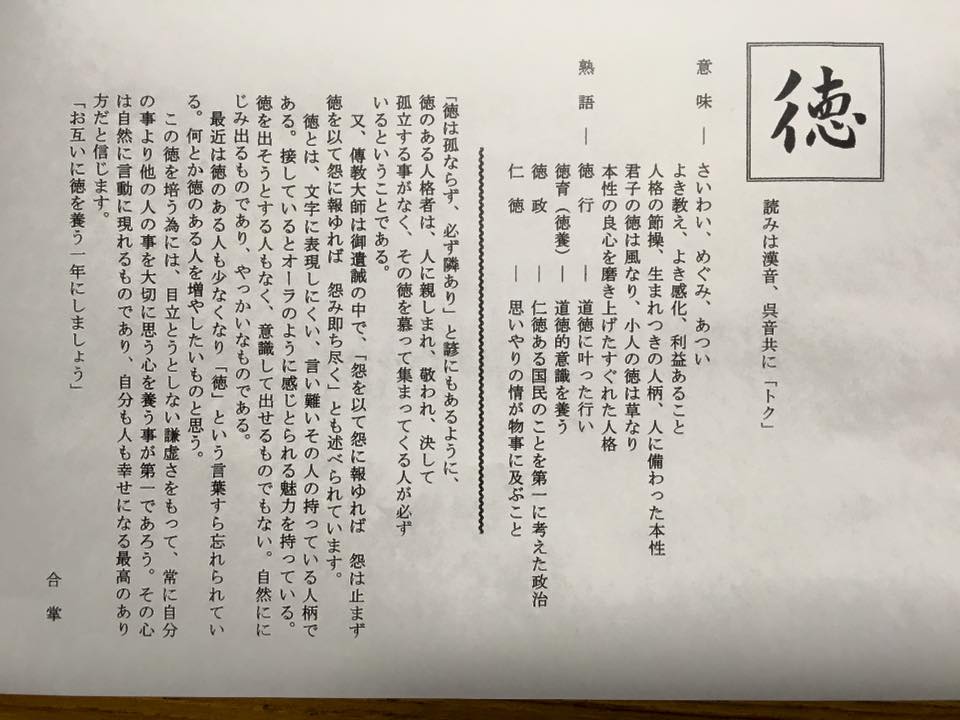 徳
読みは漢音、呉音共に「トク」
意味 ― さいわい、めぐみ、あつい
よき教え、よき感化、利益あること
人格の節操、生まれつきの人柄、人に備わった本性
君子の徳は風なり、小人の徳は草なり
本性の良心を磨き上げたすぐれた人格
熟語 ― 徳行 ― 道徳に叶った行い
徳育（徳養）― 道徳的意識を養う
徳政 ― 仁徳ある国民のことを第一に考えた政治
仁徳 ― 思いやりの情が物事に及ぶこと
「徳は孤ならず、必ず隣あり」と諺にもあるように、
徳のある人格者は、人に親しまれ、敬われ、決して
孤立する事がなく、その徳を慕って集まってくる人が必ず
いるということである。
又、傳教大師は御遺誡の中で、「怨を以て怨に報ゆれば　怨は止まず
徳を以て怨に報ゆれば　怨み即ち尽く」とも述べられています。
徳とは、文字に表現しにくい、言い難いその人の持っている人柄で
ある。接しているとオーラのように感じとられる魅力を持っている。
徳を出そうとする人もなく、意識して出せるものでもない。自然にに
じみ出るものであり、やっかいなものである。
最近は徳のある人も少なくなり「徳」という言葉すら忘れられてい
る。何とか徳のある人を増やしたいものと思う。
この徳を培う為には、目立とうとしない謙虚さをもって、常に自分
の事より他の人の事を大切に思う心を養う事が第一であろう。その心
は自然に言動に現れるものであり、自分も人も幸せになる最高のあり
方だと信じます。
「お互いに徳を養う一年にしましょう」
合掌